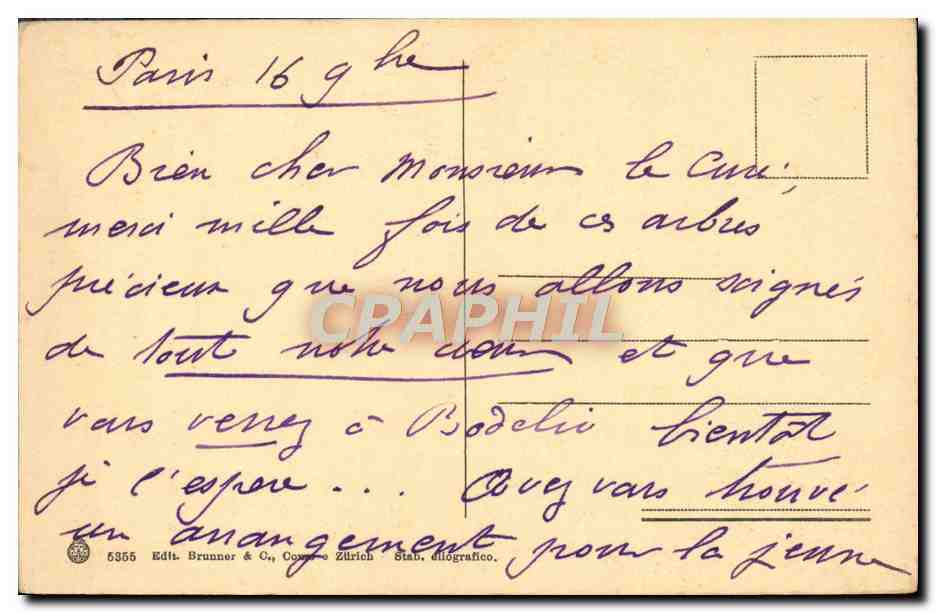 Paris 16 9bre
Bien cher Monsieur le Curé,
merci mille fois de ces arbres
précieux que nous allons soignés
de tout notre coeur et que
vous verrez à Bodelio bientôt
je l'espere... Avez vous trouvé
un arrangement pour la jeune
5355 Edit. Brunner & C., Como e Zürich Stab. eliografico.
CPAPHIL